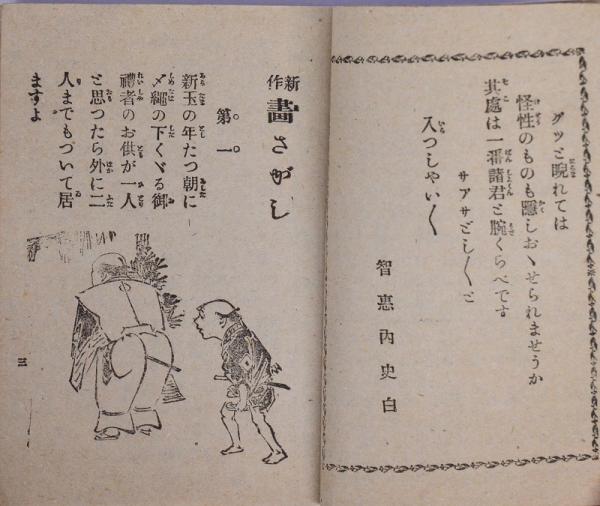 グツと睨れては
怪性のものも隱しおヽせられませうか
其處は一番諸君と腕くらべです
サアサどし〳〵と
入つしやい〳〵
智惠內史白
新作 畵さがし
第一
新玉の年たつ朝に
〆繩の下くゞる御
禮者のお供が一人
と思つたら外に二
人までもついて居
ますよ
三